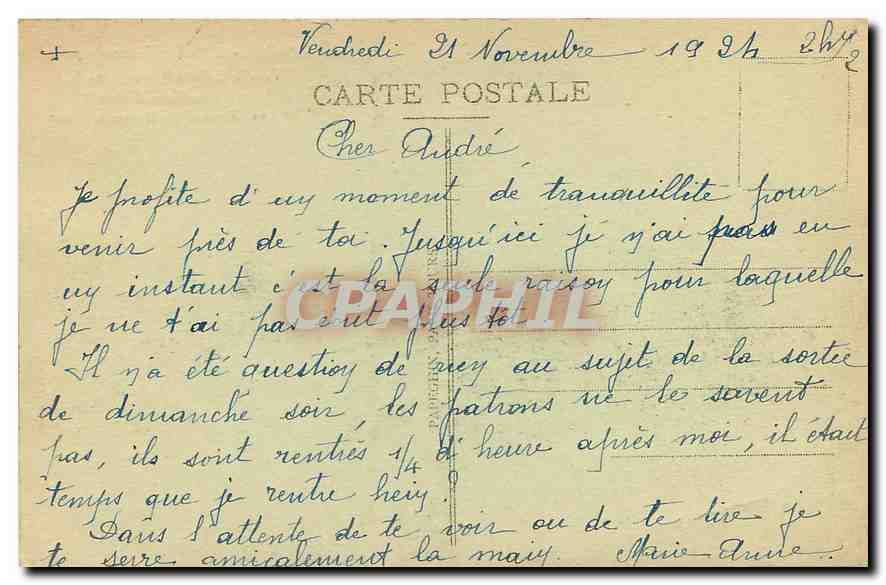 Vendredi 21 Novembre 1924 2h 1/2
CARTE POSTALE
Cher André
Je profite d'un moment de tranquillité pour
venir près de toi. Jusqu'ici je n'ai pas eu
un instant c'est la seule raison pour laquelle
je ne t'ai pas écrit plus tôt
Il n'a été question de rien au sujet de la sortie
de dimanche soir, les patrons ne le savent
pas, ils sont rentrés 1/4 d'heure après moi, il était
temps que je rentre hein.
Dans l'attente de te voir ou de te lire je
te serre amicalement la main. Marie Anne.
CPAPHIL